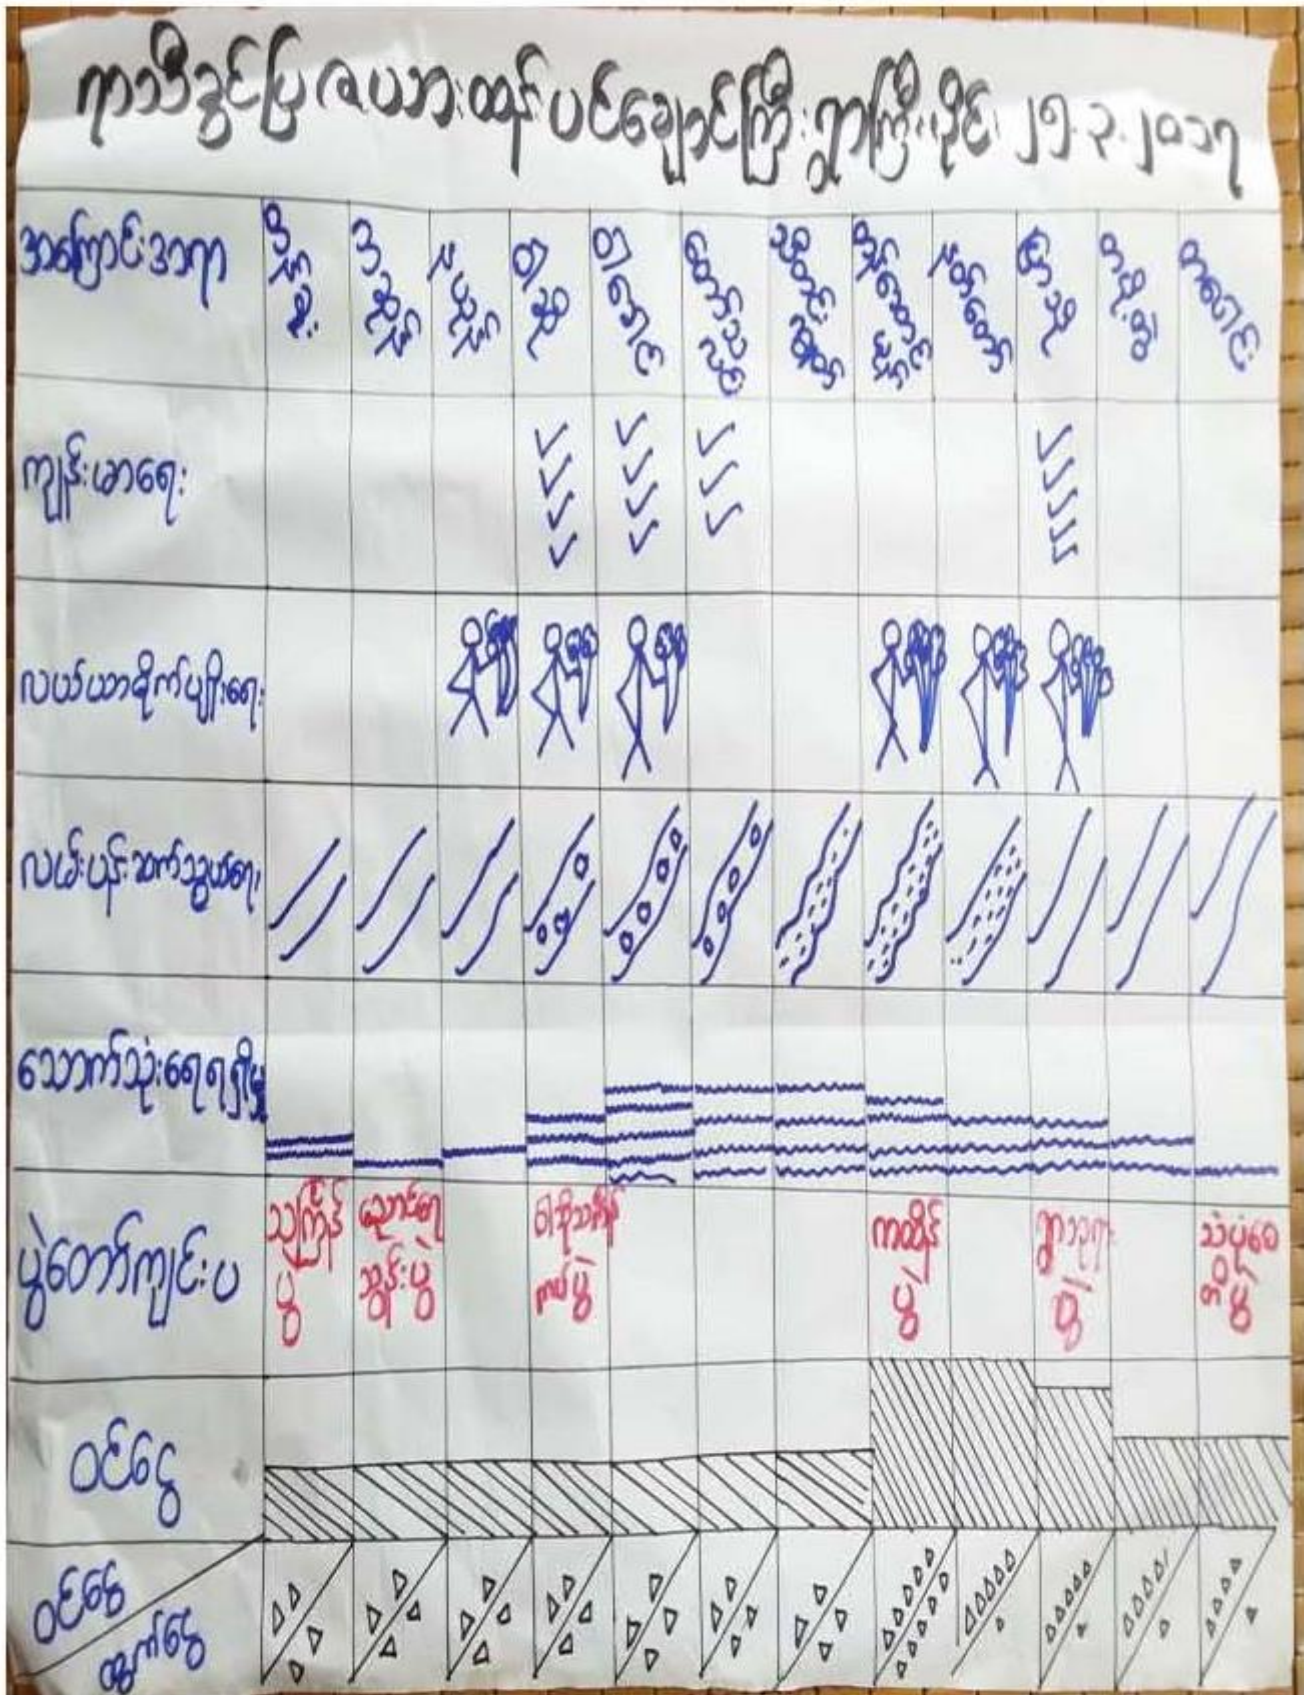 ရာသီခွင်ပြဇယားထန်ပင်ချောင်ကြီးရွာကြီး ၂၅.၃.၂၀၁၇
အကြောင်းအရာ တန်ခူး ကဆုန် နယုန် ဝါဆို ဝါခေါင် တော်သလင်း သီတင်းကျွတ် တန်ဆောင်မုန်း နတ်တော် ပြာသို တပို့တွဲ တပေါင်း
ကျန်းမာရေး
လယ်ယာစိုက်ပျိုးရေး
လမ်းပန်းဆက်သွယ်ရေး
သောက်သုံးရေရရှိမှု
ပွဲတော်ကျင်းပ သင်္ကြန်ပွဲ ညောင်ရေသွန်းပွဲ ကထိန်ပွဲ ပွဲ ပွဲ
ဝင်ငွေ
ဝင်ငွေ
ထွက်ငွေ